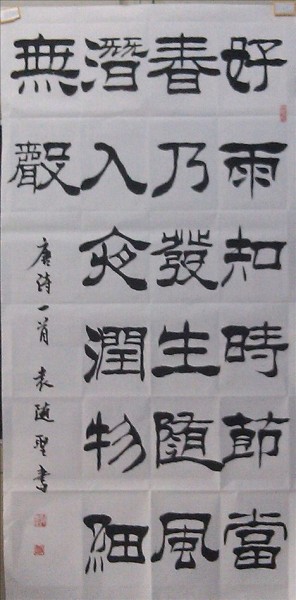 好雨知時節當
春乃發生隨風
潛入夜潤物細
無聲
唐詩一首 袁随聖書